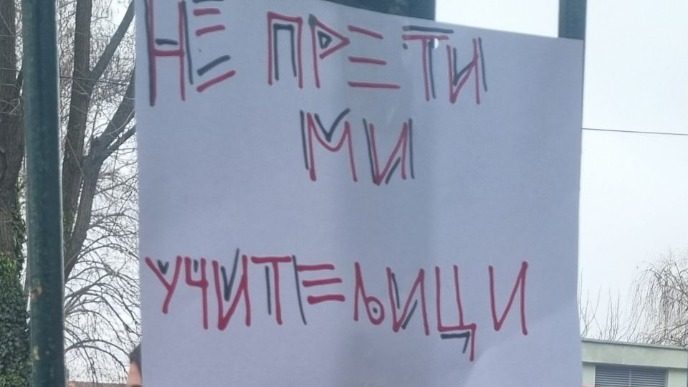 НЕ ПРЕТИ
МИ
УЧИТЕЉИЦИ